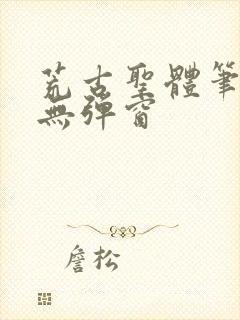 荒古聖體筆
無彈窗
詹松